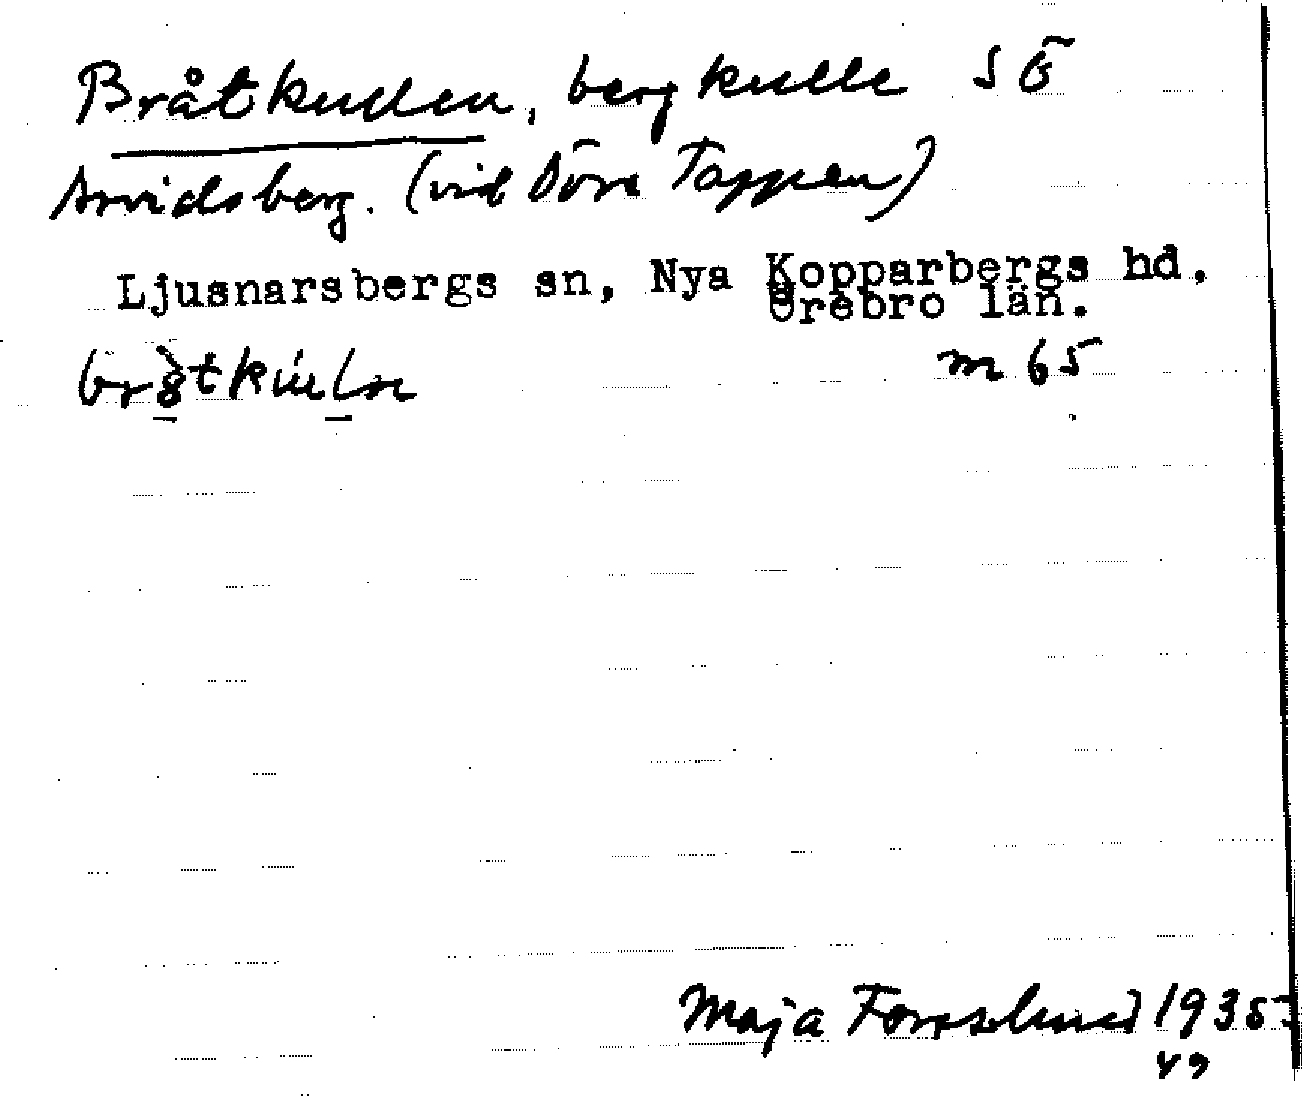 Bråtkullen, bergkulle SÖ
Arvidsberg. (vid Övre Tappen)
Ljusnarsbergs sn, Nya Kopparbergs hd,
Örebro län.
m 65
Maja Forsslund 1935